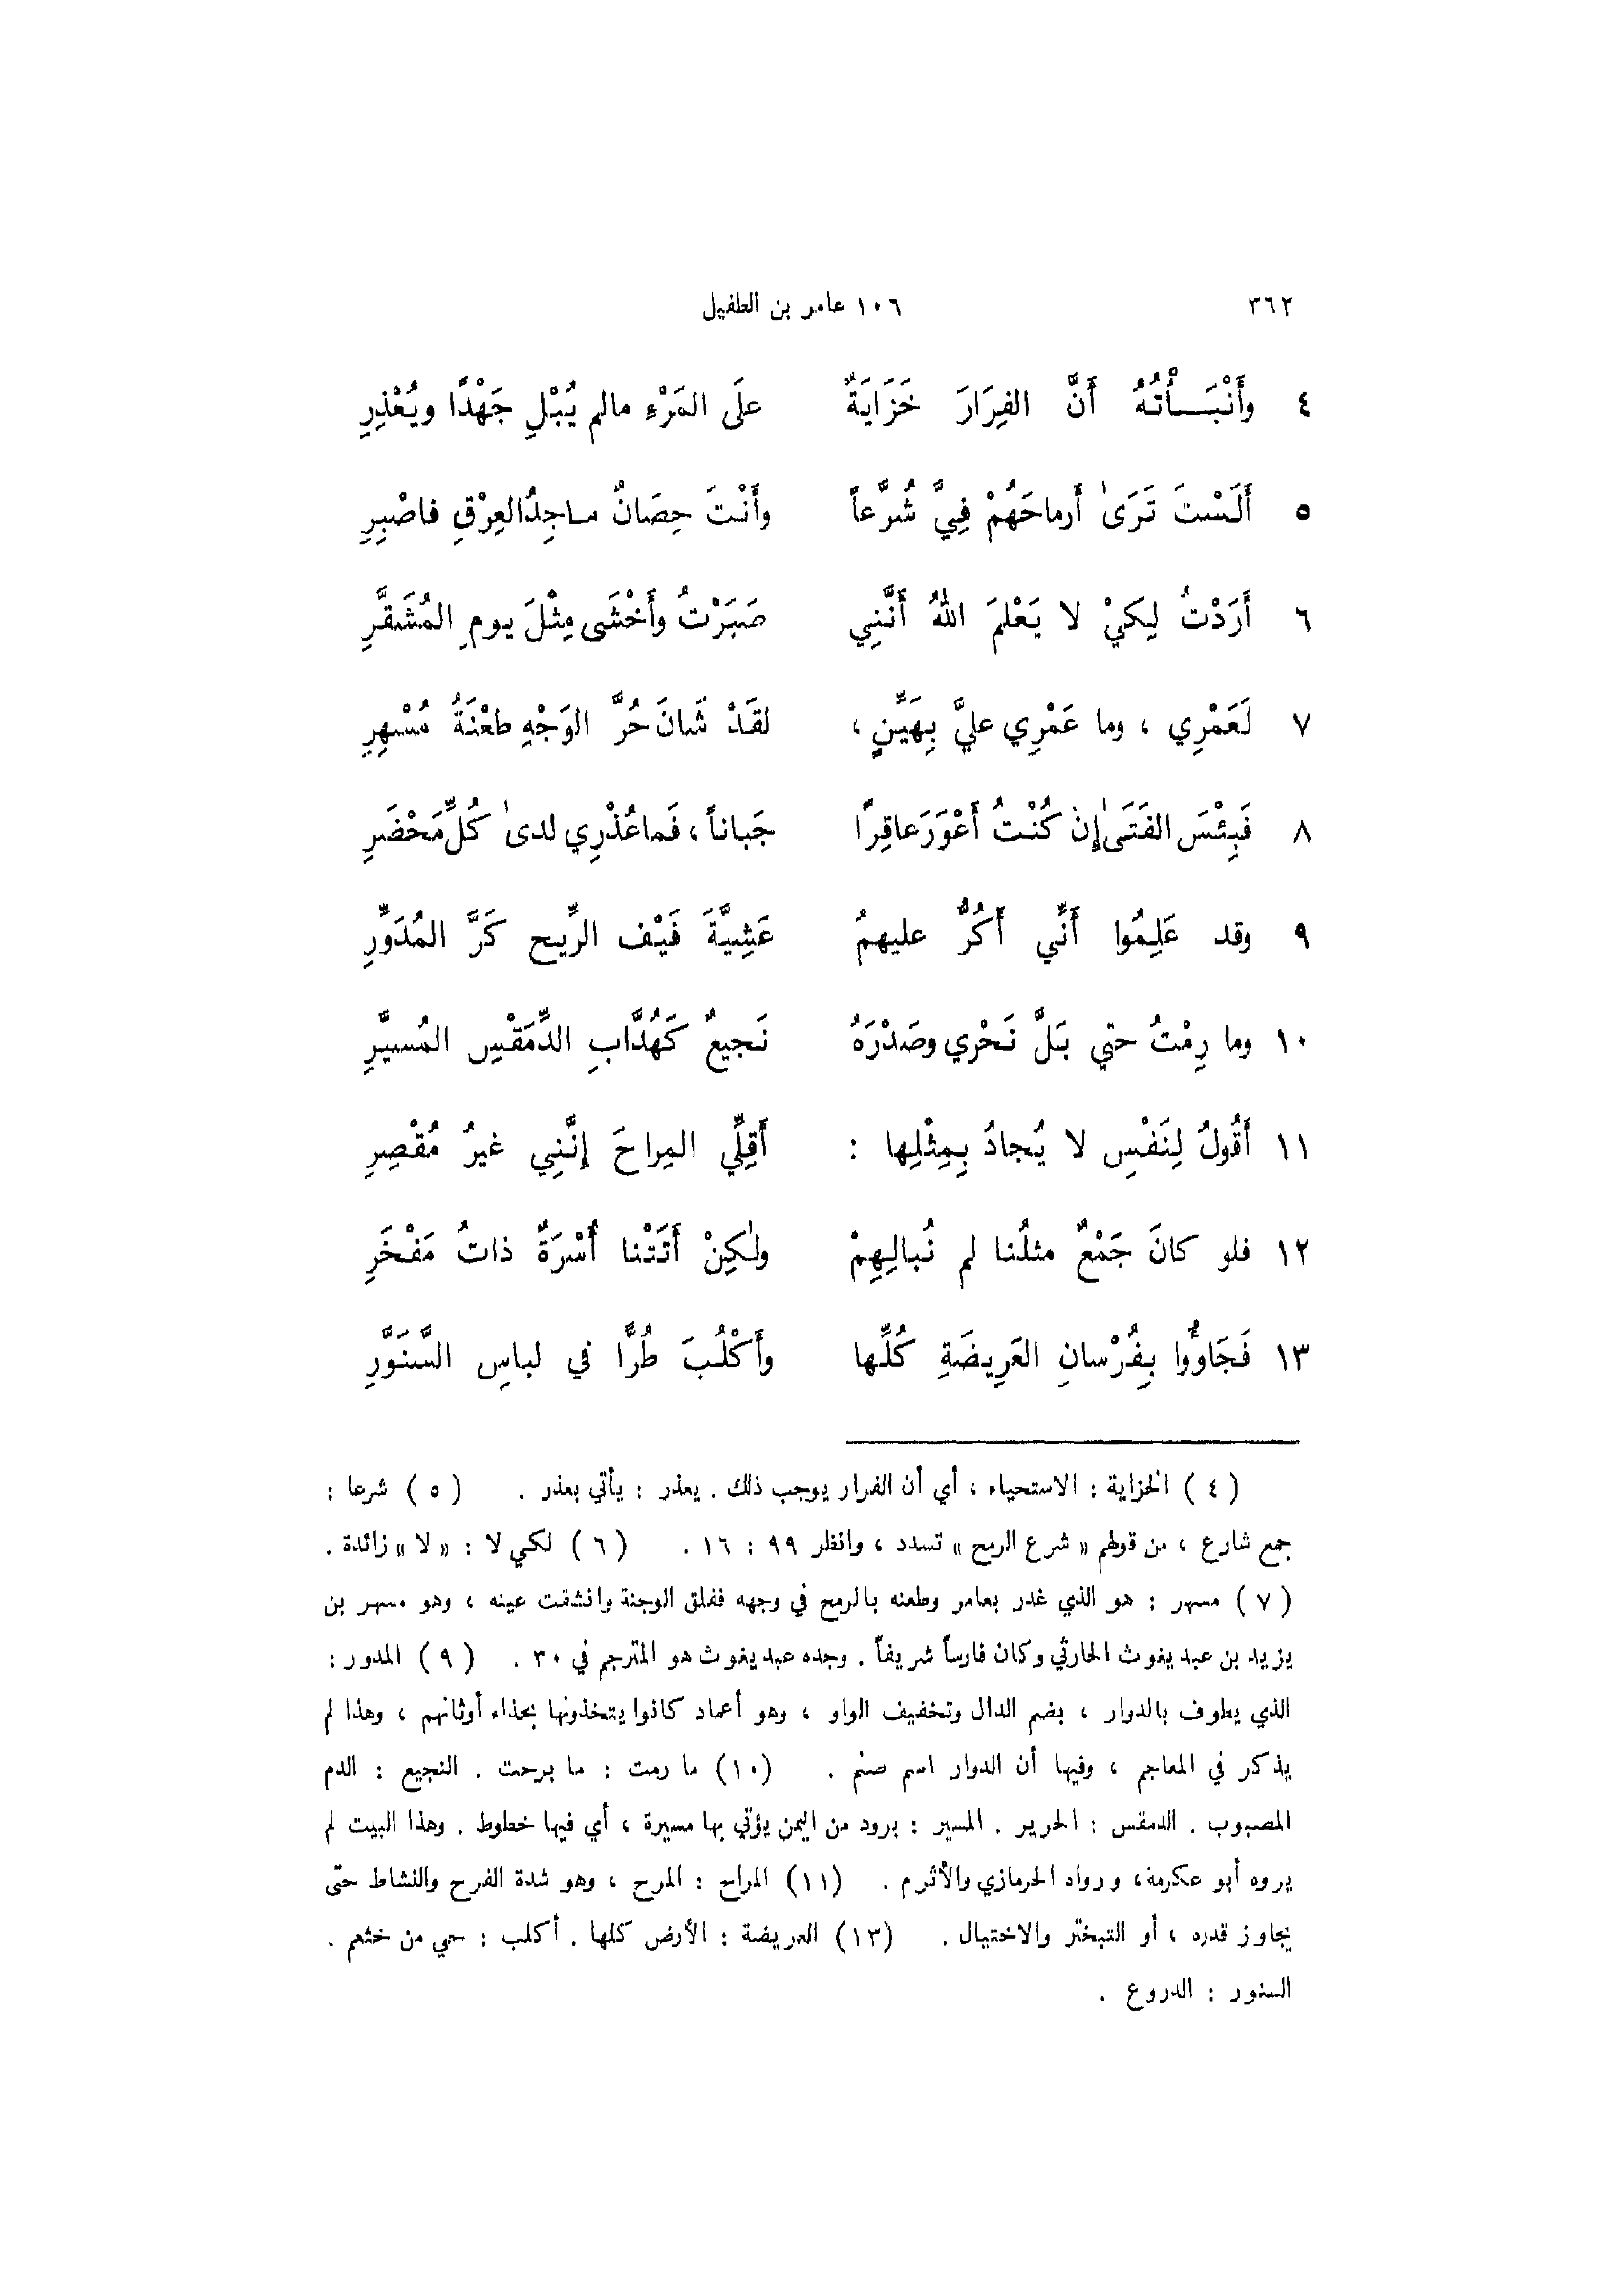 ٣٦٢ ١٠٦ عامر بن الطفيل
٤ وأَنْبَـــأْتُهُ أَنَّ الفِرَارَ خَزَايَةٌ علَى المَرْءِ مالم يُبْلِ جَهْدًا ويُعْذِرِ
٥ أَلَسْتَ تَرَىٰ أَرماحَهُمْ فِيَّ شُرَّعاً وأَنْتَ حِصَانٌ مـاجِدُ العِرْقِ فاصْبِرِ
٦ أَرَدْتُ لِكَيْ لا يَعْلَمَ اللهُ أَنَّنِي صَبَرْتُ وأَخْشَى مِثْلَ يومِ المُشَقَّرِ
٧ لَعَمْرِي ، وما عَمْرِي عليَّ بِهَيِّنٍ ، لقَدْ شَانَ حُرَّ الوَجْهِ طعْنَةُ مُسْهِرِ
٨ فَبِئْسَ الفَتَىٰ إِن كُنْتُ أَعْوَرَ عاقِرًا جَباناً ، فَما عُذْرِي لدىٰ كُلِّ مَحْضَرِ
٩ وقد عَلِمُوا أَنِّي أَكُرُّ عليهمُ عَشِيَّةَ فَيْف الرِّيح كَرَّ المُدَوِّرِ
١٠ وما رِمْتُ حتي بَلَّ نَحْري وصَدْرَهُ نَجيعٌ كَهُدَّابِ الدِّمَقْسِ المُسيَّرِ
١١ أَقُولُ لِنَفْسٍ لا يُجادُ بِمِثْلِها : أَقِلِّي المِراحَ إِنَّنِي غيرُ مُقْصِرِ
١٢ فلو كانَ جَمْعٌ مثلُنا لم نُبالِهِمْ ولٰكِنْ أَتَتْنا أُسْرَةٌ ذاتُ مَفْخَرِ
١٣ فَجَاوُّوا بِفُرْسانِ العَرِيضَةِ كُلِّها وأَكْلُبَ طُرًّا في لباسِ السَّنَوَّرِ
( ٤ ) الخزاية : الاستحياء ، أي أن الفرار يوجب ذلك . يعذر : يأتي بعذر . ( ٥ ) شرعا :
جمع شارع ، من قولهم « شرع الرمح » تسدد ، وانظر ٩٩ : ١٦ . ( ٦ ) لكي لا : « لا » زائدة .
( ٧ ) مسهر : هو الذي غدر بعامر وطعنه بالرمح في وجهه ففلق الوجنة وانشقت عينه ، وهو مسهر بن
يزيد بن عبد يغوث الحارثي وكان فارساً شريفاً . وجده عبد يغوث هو المترجم في ٣٠ . ( ٩ ) المدور :
الذي يطوف بالدوار ، بضم الدال وتخفيف الواو ، وهو أعماد كانوا يتخذونها بحذاء أوثانهم ، وهذا لم
يذكر في المعاجم ، وفيها أن الدوار اسم صنم . (١٠) ما رمت : ما برحت . النجيع : الدم
المصبوب . الدمقس : الحرير . المسير : برود من اليمن يؤتي بها مسيرة ، أي فيها خطوط . وهذا البيت لم
يروه أبو عكرمة، ورواه الحرمازي والأثرم . (١١) المراح : المرح ، وهو شدة الفرح والنشاط حتى
يجاوز قدره ، أو التبختر والاختيال . (١٣) العريضة : الأرض كلها . أكلب : حي من خثعم .
السنور : الدروع .